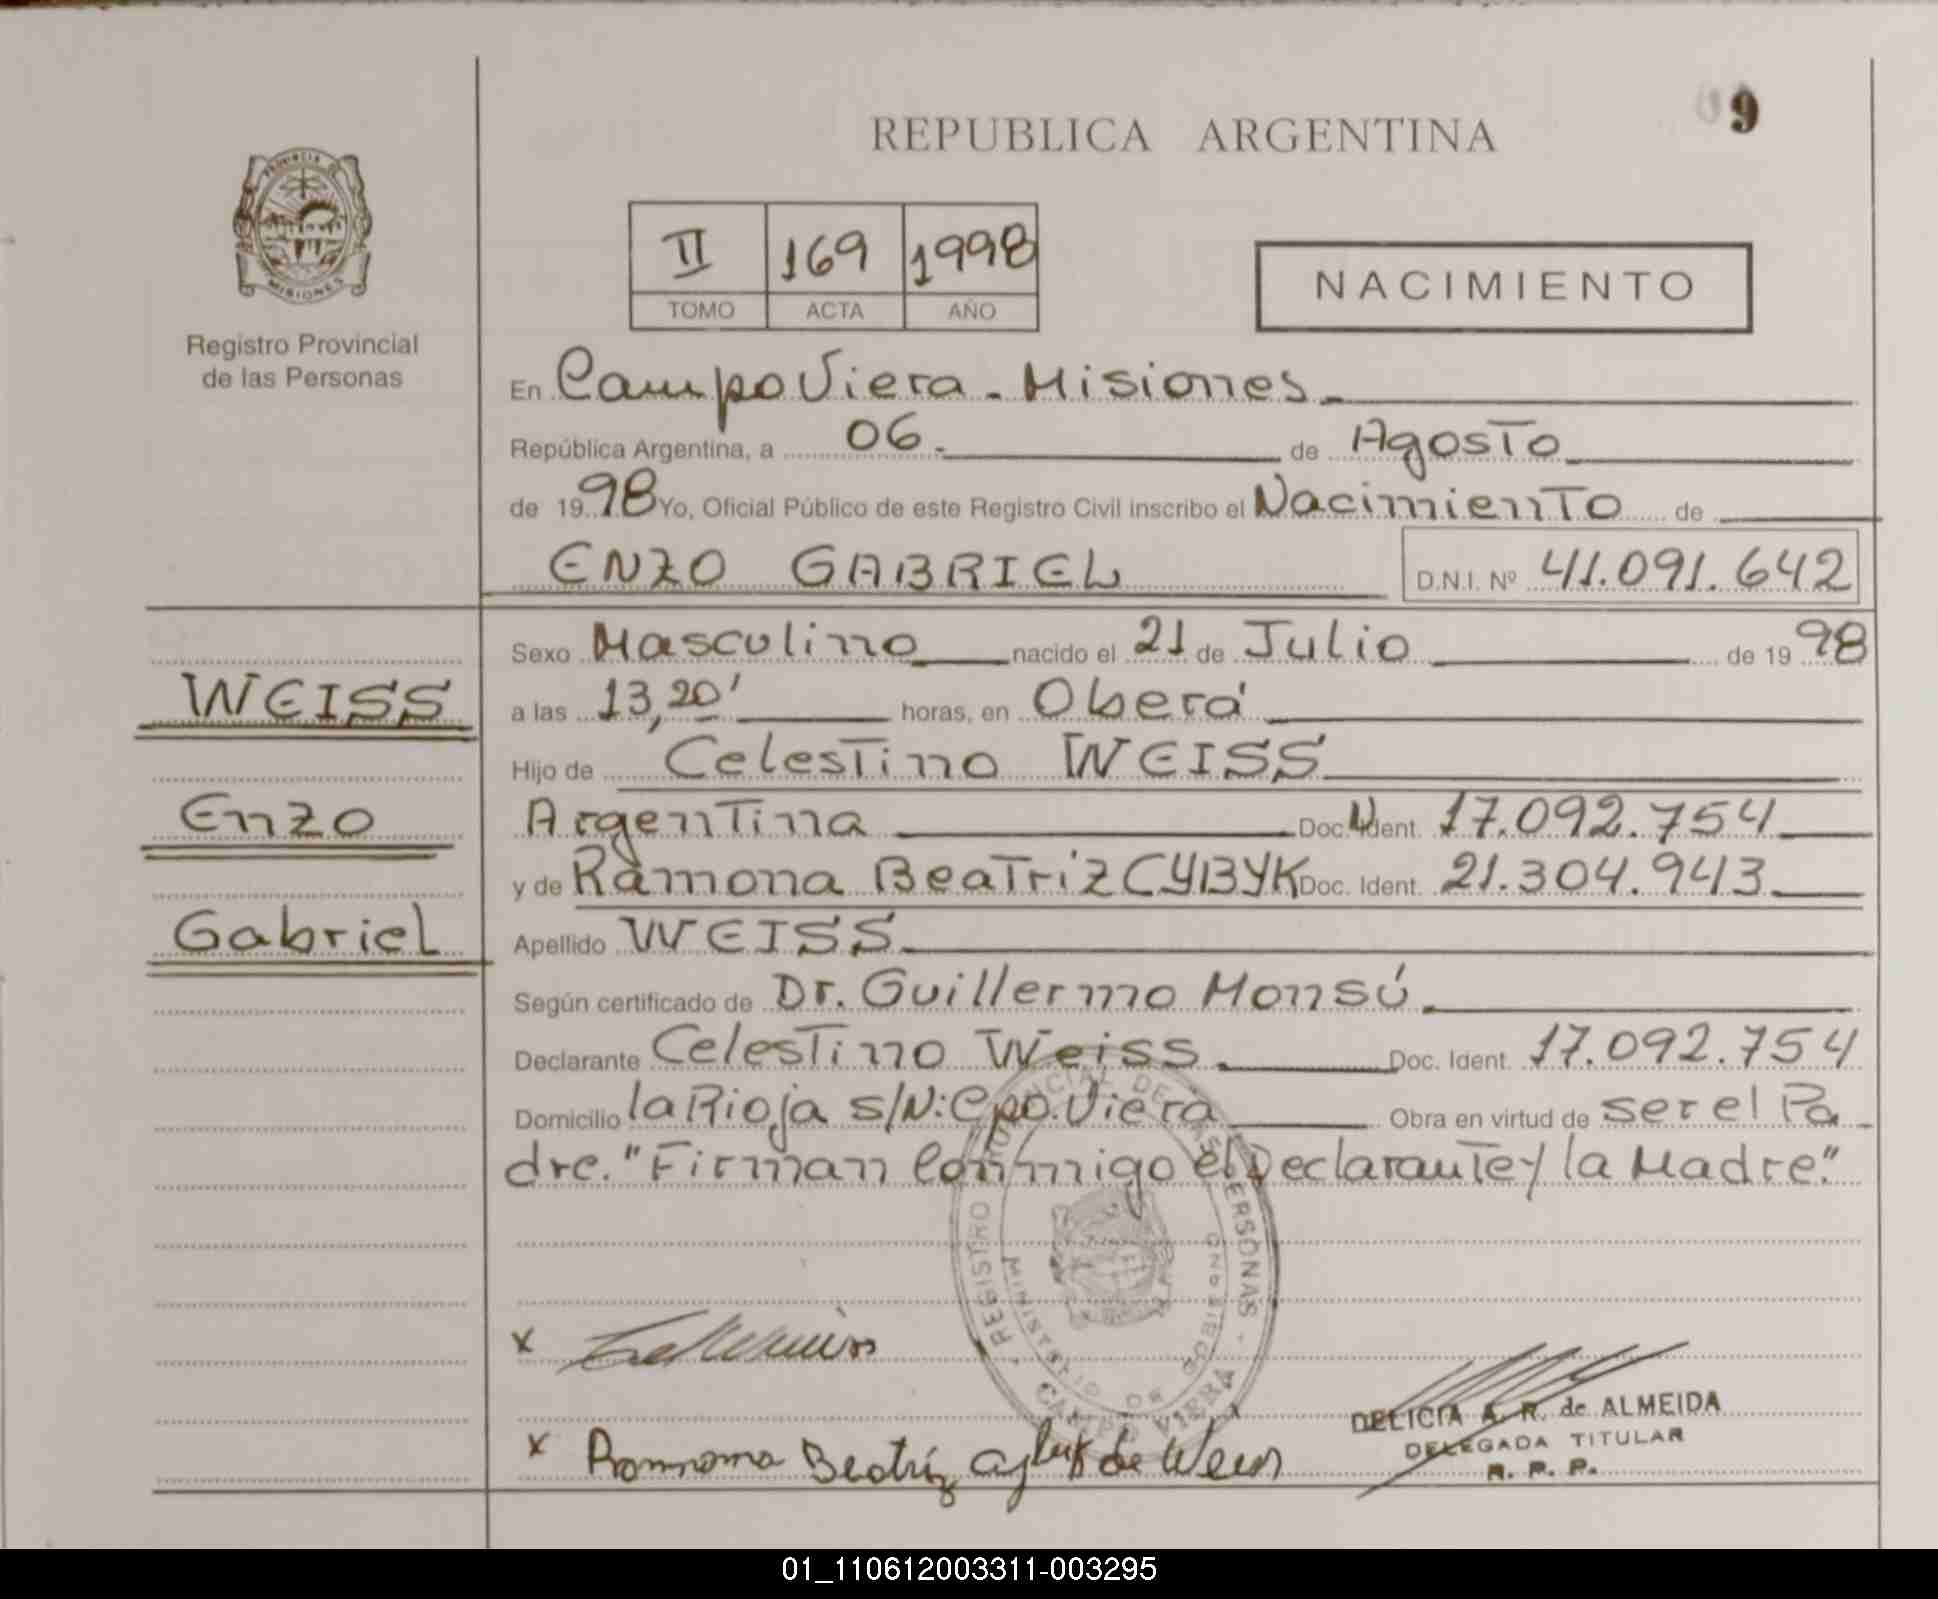 09
REPUBLICA ARGENTINA
PROVINCIA
MISIONES
Registro Provincial
de las Personas
II 169 1998
TOMO ACTA AÑO
NACIMIENTO
En Campo Viera - Misiones
República Argentina, a 06 de Agosto
de 1998 Yo, Oficial Público de este Registro Civil inscribo el Nacimiento de
ENZO GABRIEL D.N.I. Nº 41.091.642
Sexo Masculino nacido el 21 de Julio de 1998
WEISS
a las 13,20' horas, en Oberá
Hijo de Celestino WEISS
Enzo
Argentina Doc. Ident. 17.092.754
y de Ramona Beatriz CYBYK Doc. Ident. 21.304.943
Gabriel
Apellido WEISS
Según certificado de Dr. Guillermo Monsú
Declarante Celestino Weiss Doc. Ident. 17.092.754
Domicilio la Rioja s/N: Cpo. Viera Obra en virtud de ser el Pa
dre. "Firman Conmigo el Declarante y la Madre".
REGISTRO PROVINCIAL DE LAS PERSONAS
MINISTERIO DE GOBIERNO
CAMPO VIERA
x
x Ramona Beatriz Cybyk de Weiss
DELICIA A. R. de ALMEIDA
DELEGADA TITULAR
R. P. P.
01_110612003311-003295